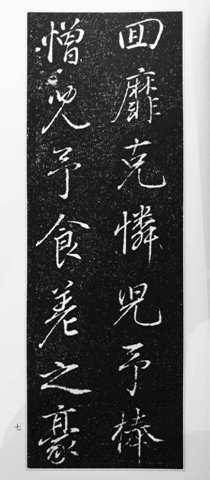 回靡克憐兒予棒
憎兒予食之
七